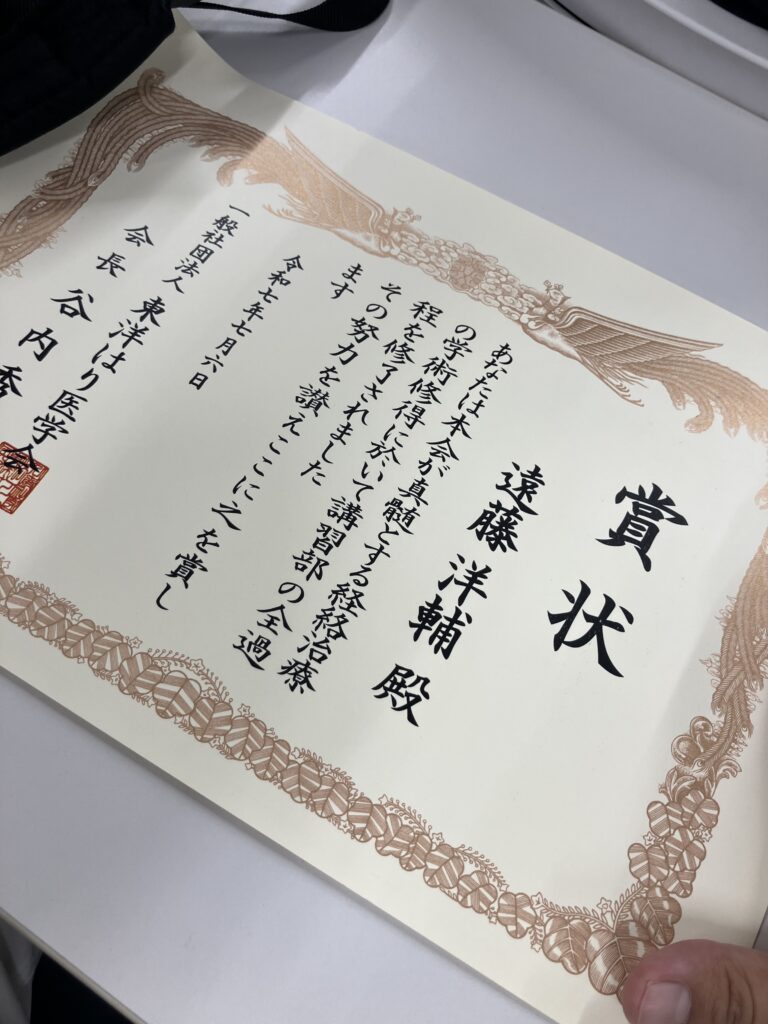 賞状
遠藤洋輔殿
あなたは本会が真髄とする経絡治療
の学術修得に於いて講習部の全過
程を修了されました
その努力を讃えここに之を賞し
ます
令和七年七月六日
一般社団法人 東洋はり医学会
会長 谷内秀